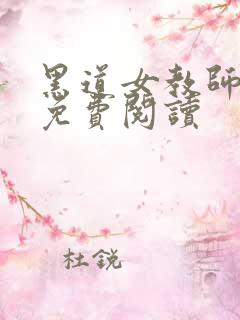 黑道女教師
免費閱讀
杜銳